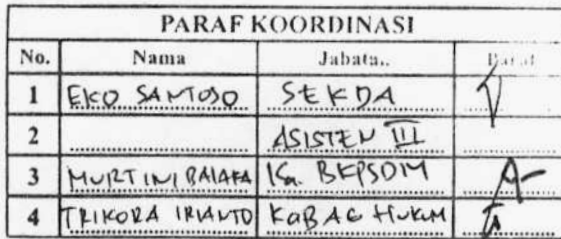 PARAF KOORDINASI
No. Nama Jabata.. Paraf
1 EKO SANTOSO SEKDA
2 ASISTEN III
3 MURTINI Ka. BKPSDM
4 TRIKORA IRIANTO KABAG HUKUM